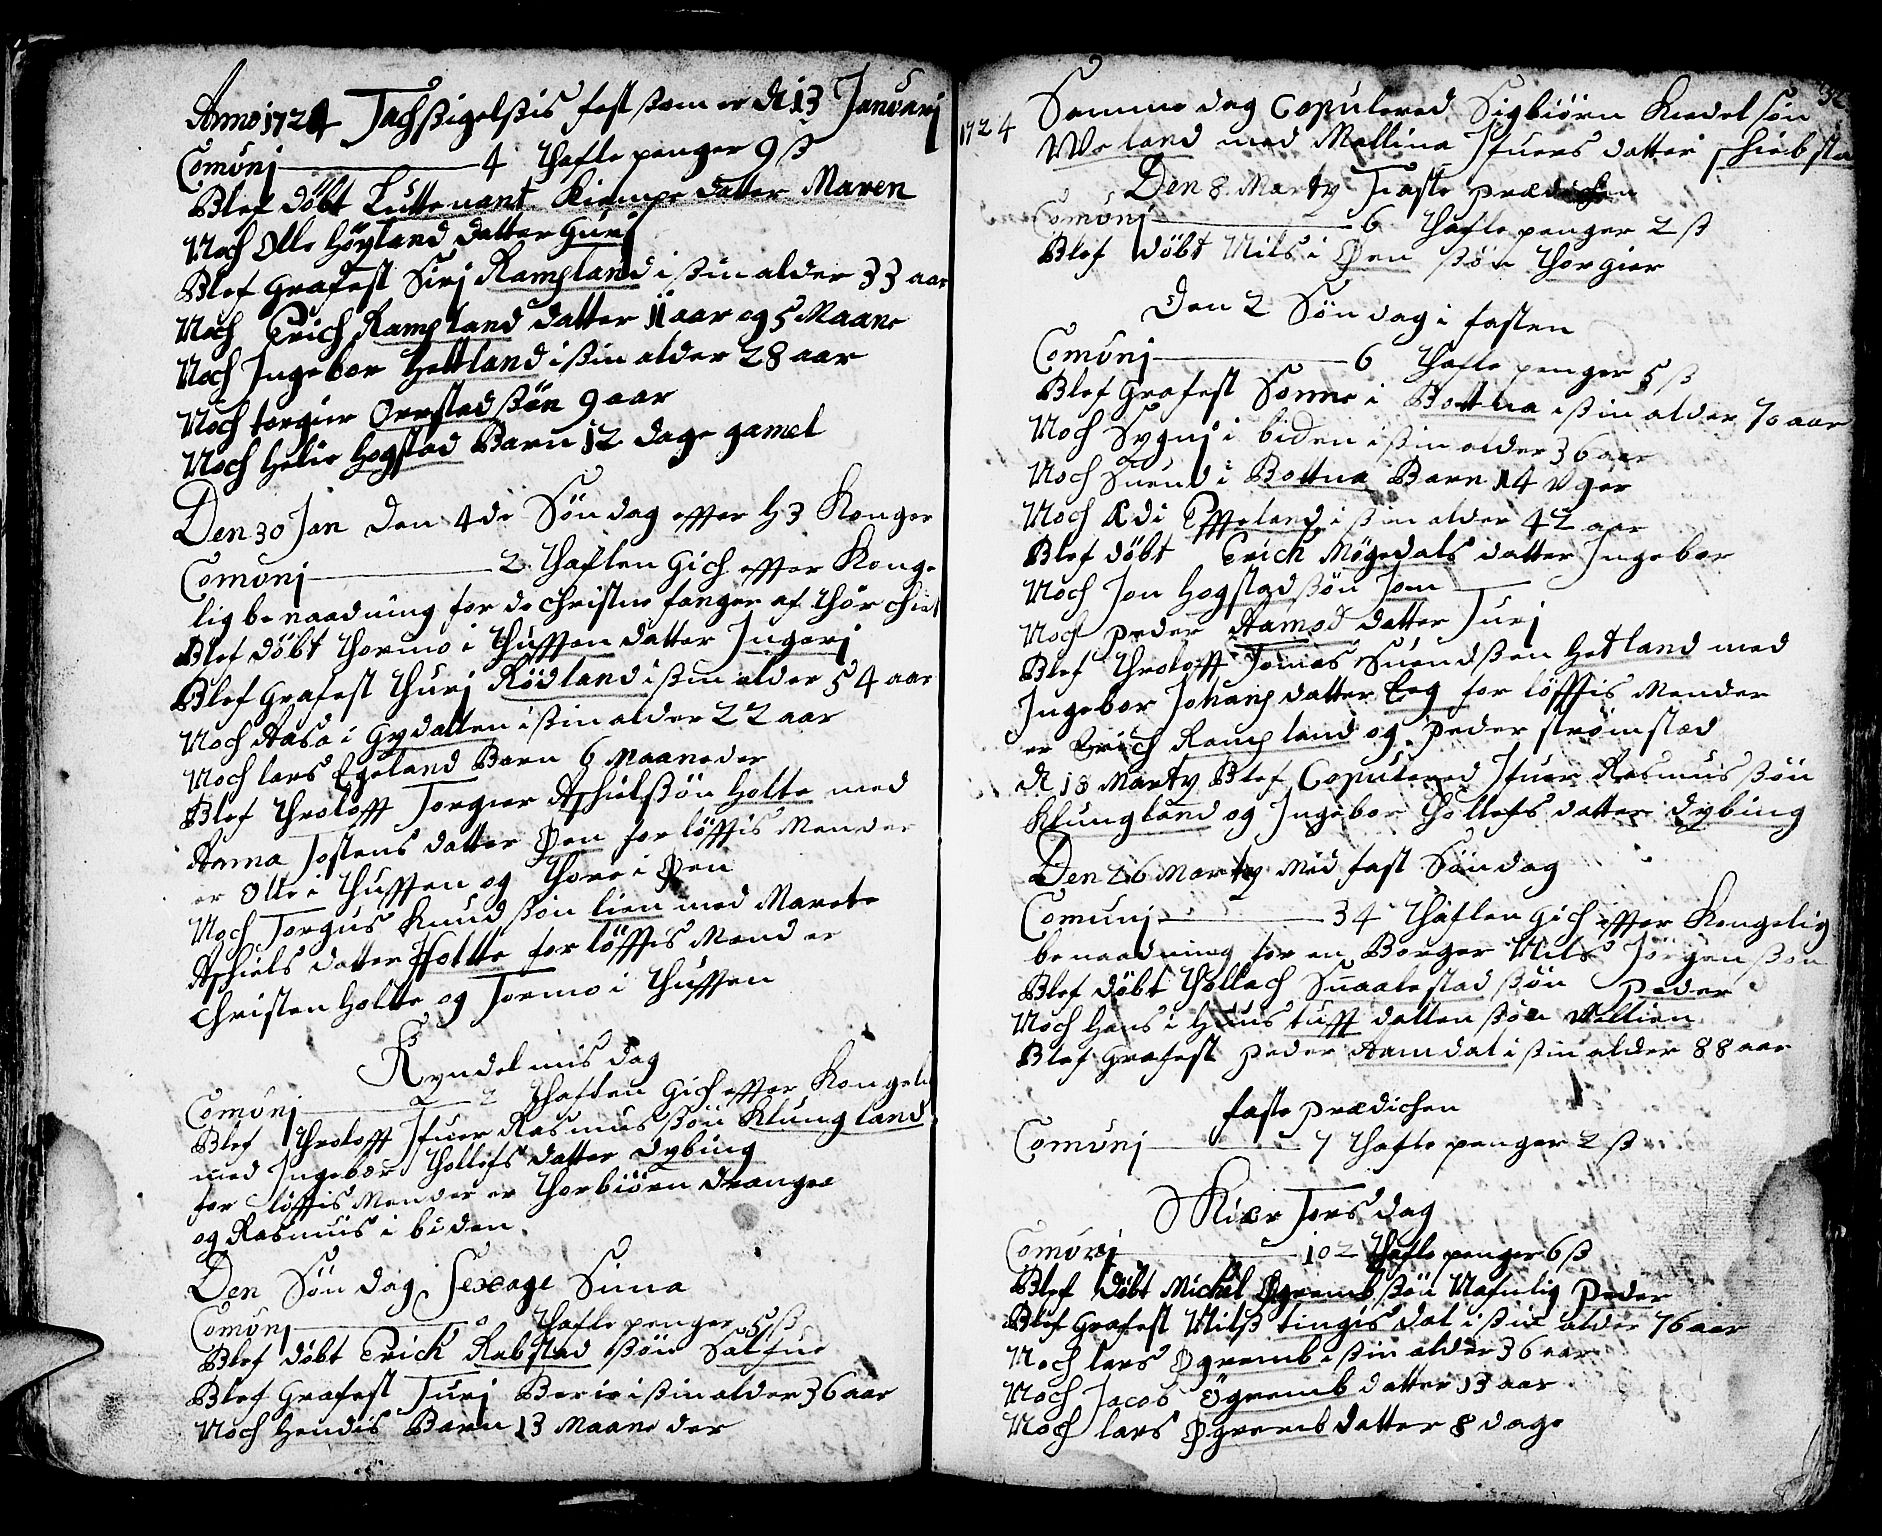 Anno 1724 Tachsigelsis fest som er d 13 Januarj
Comunj 4 Thafle penger 9 ß
Blef döbt Luttenant Kiempe datter Maren
Noch Olle Höyland datter Gurj
Blef Grafest Sirj Rampland i ßin alder 33 aar
Noch Erich Rampland datter 11 aar og 5 Maane
Noch Ingebor Hettland i ßin alder 28 aar
Noch torgier Orrstad ßön 9 aar
Noch Helie Hogstad Barn 12 dage gamel
Den 30 Jan den 4de Söndag effter H 3 Konger
Comunj 2 Thaflen Gich effter Konge
lig benaadning for de Christne fanger af
Blef döbt Thormo i Thuffen datter Ingerj
Blef Grafest Thurj Rödland i ßin alder 54 aar
Noch Aasa i Gydalten i ßin alder 22 aar
Noch lars Egeland Barn 6 Maaneder
Blef Throloff Torgier Aschielßön Holte med
Anna Jostens datter Øen for löfftis Mender
er Olle i Thuffen og Thore i Øen
Noch Torgus Knud ßön lien med Marete
Aschiels datter Holtte for löfftis Mend er
Christen Holte og Tormo i Thuffen
Kyndelmis dag
Comunj 2 Thaflen Gich effter Kongeli
Blef Throloff Ifuer Rasmus ßön Klungland
med Ingebor Thollefs datter Dybing
for löfftis Mender er Thorbiörn Drange
og Rasmus i biden
Den Söndag Sexage Sima
Comunj 0 Thafle penger 5 ß
Blef döbt Erich Rabstad ßön Salfue
Blef Grafest Turj Berie i ßin alder 36 aar
Noch Hendis Barn 13 Maaneder
32
1724
Samme dag Copulered Sigbiörn Kiedel sön
Woland med Mallina Ifuers datter
Den 8 Marty Faste prædichen
Comunj 6 Thafle penger 2 ß
Blef döbt Nils i Øen ßön Thorgier
Den 2 Söndag i fasten
Comunj 6 Thafle penger 5 ß
Blef Grafest Sonne i Bottna i ßin alder 70 aar
Noch Sygnj i biden i ßin alder 36 aar
Noch Suend i Bottna Barn 14 Uger
Noch Adi Effteland i ßin alder 42 aar
Blef döbt Erich Mögedals datter Ingebor
Noch Jon Hogstad ßön Jon
Noch peder Aamod datter Turj
Blef Throloff Tomas Suendßen Hetland med
Ingebor Johans datter Eeg for löfftis Mender
er Erich Rampland og peder strömstad
d 18 Marty Blef Copulered Ifuer Rasmus ßön
Klungland og Ingebor Thollefs datter Dybing
Den 26 Marty Mid fast Söndag
Comunj 34 Thaflen Gich effter Kongelig
benaadning for en Borger Nils Jörgen ßön
Blef döbt Thollach Suaalestad ßön Peder
Noch Hans i Huus tufft datten ßön
Blef Grafest peder Aamdal i ßin alder 88 aar
faste prædichen
Comunj 7 Thafle penger 2 ß
Skier Torsdag
Comunj 102 Thafle penger 6 ß
Blef döbt Michel Øgremb ßön Nafnlig Peder
Blef Grafest Nilß tingis dal i ßin alder 76 aar
Noch lars Øgremb i ßin alder 36 aar
Noch Jacob Øgremb datter 13 aar
Noch lars Øgremb datter 8 dage